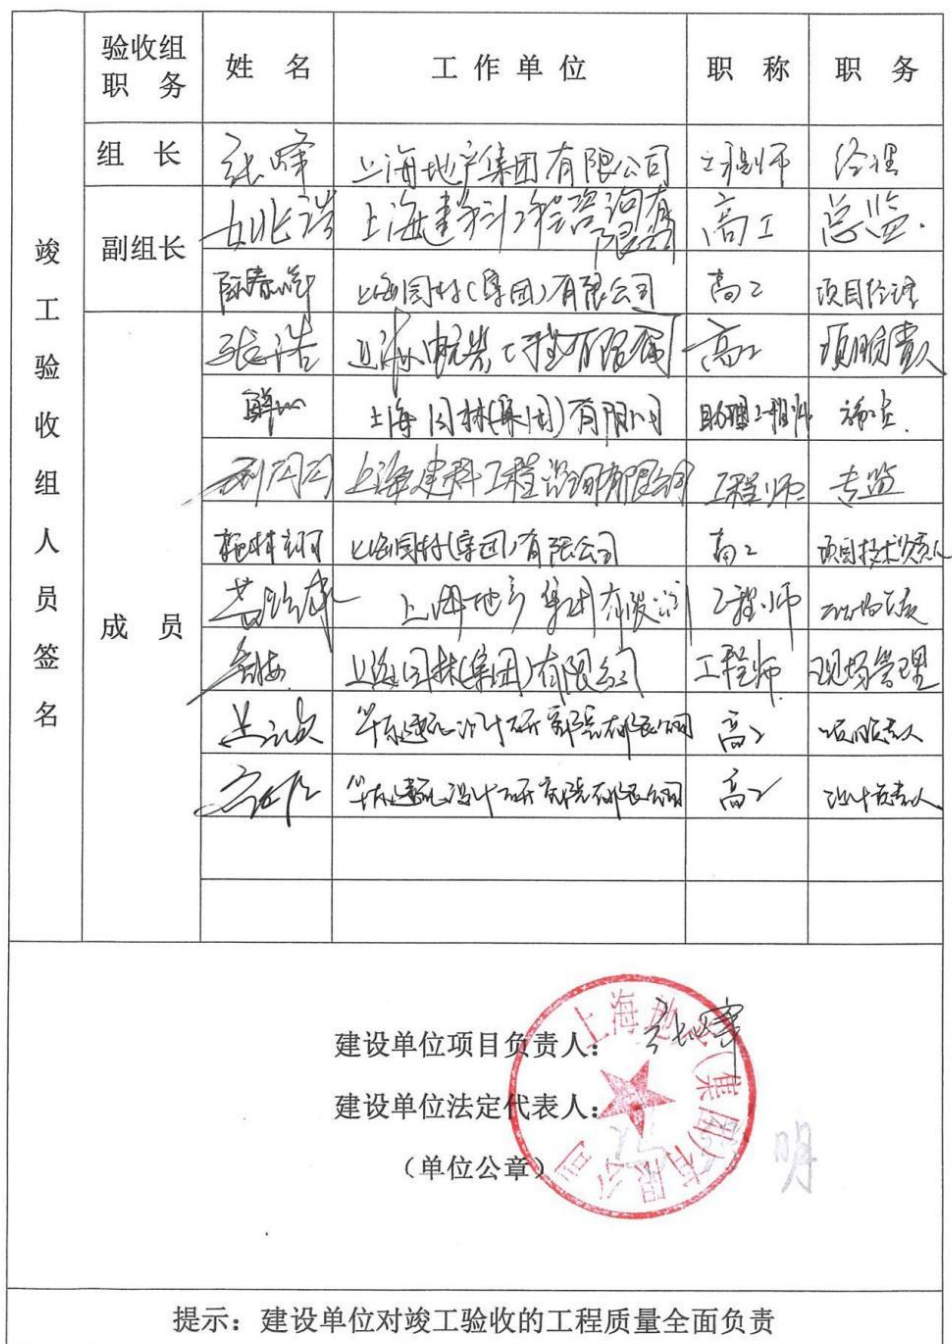 竣工验收组人员签名
验收组职务 姓名 工作单位 职称 职务
组长 张峰 上海地产集团有限公司 工程师 经理
副组长 上海建科工程咨询有限公司 高工 总监
上海园林(集团)有限公司 高工 项目经理
成员 张浩 上海 工程有限公司 高工 项目负责人
上海园林(集团)有限公司 助理工程师 施工员
上海建科工程咨询有限公司 工程师 专监
上海园林(集团)有限公司 高工 项目技术负责人
上海地产集团有限公司 工程师
上海园林(集团)有限公司 工程师 现场管理
华东建筑设计研究院有限公司 高工 项目负责人
华东建筑设计研究院有限公司 高工 设计负责人
建设单位项目负责人: 张峰
建设单位法定代表人: 明
(单位公章)
上海地产(集团)有限公司
提示:建设单位对竣工验收的工程质量全面负责